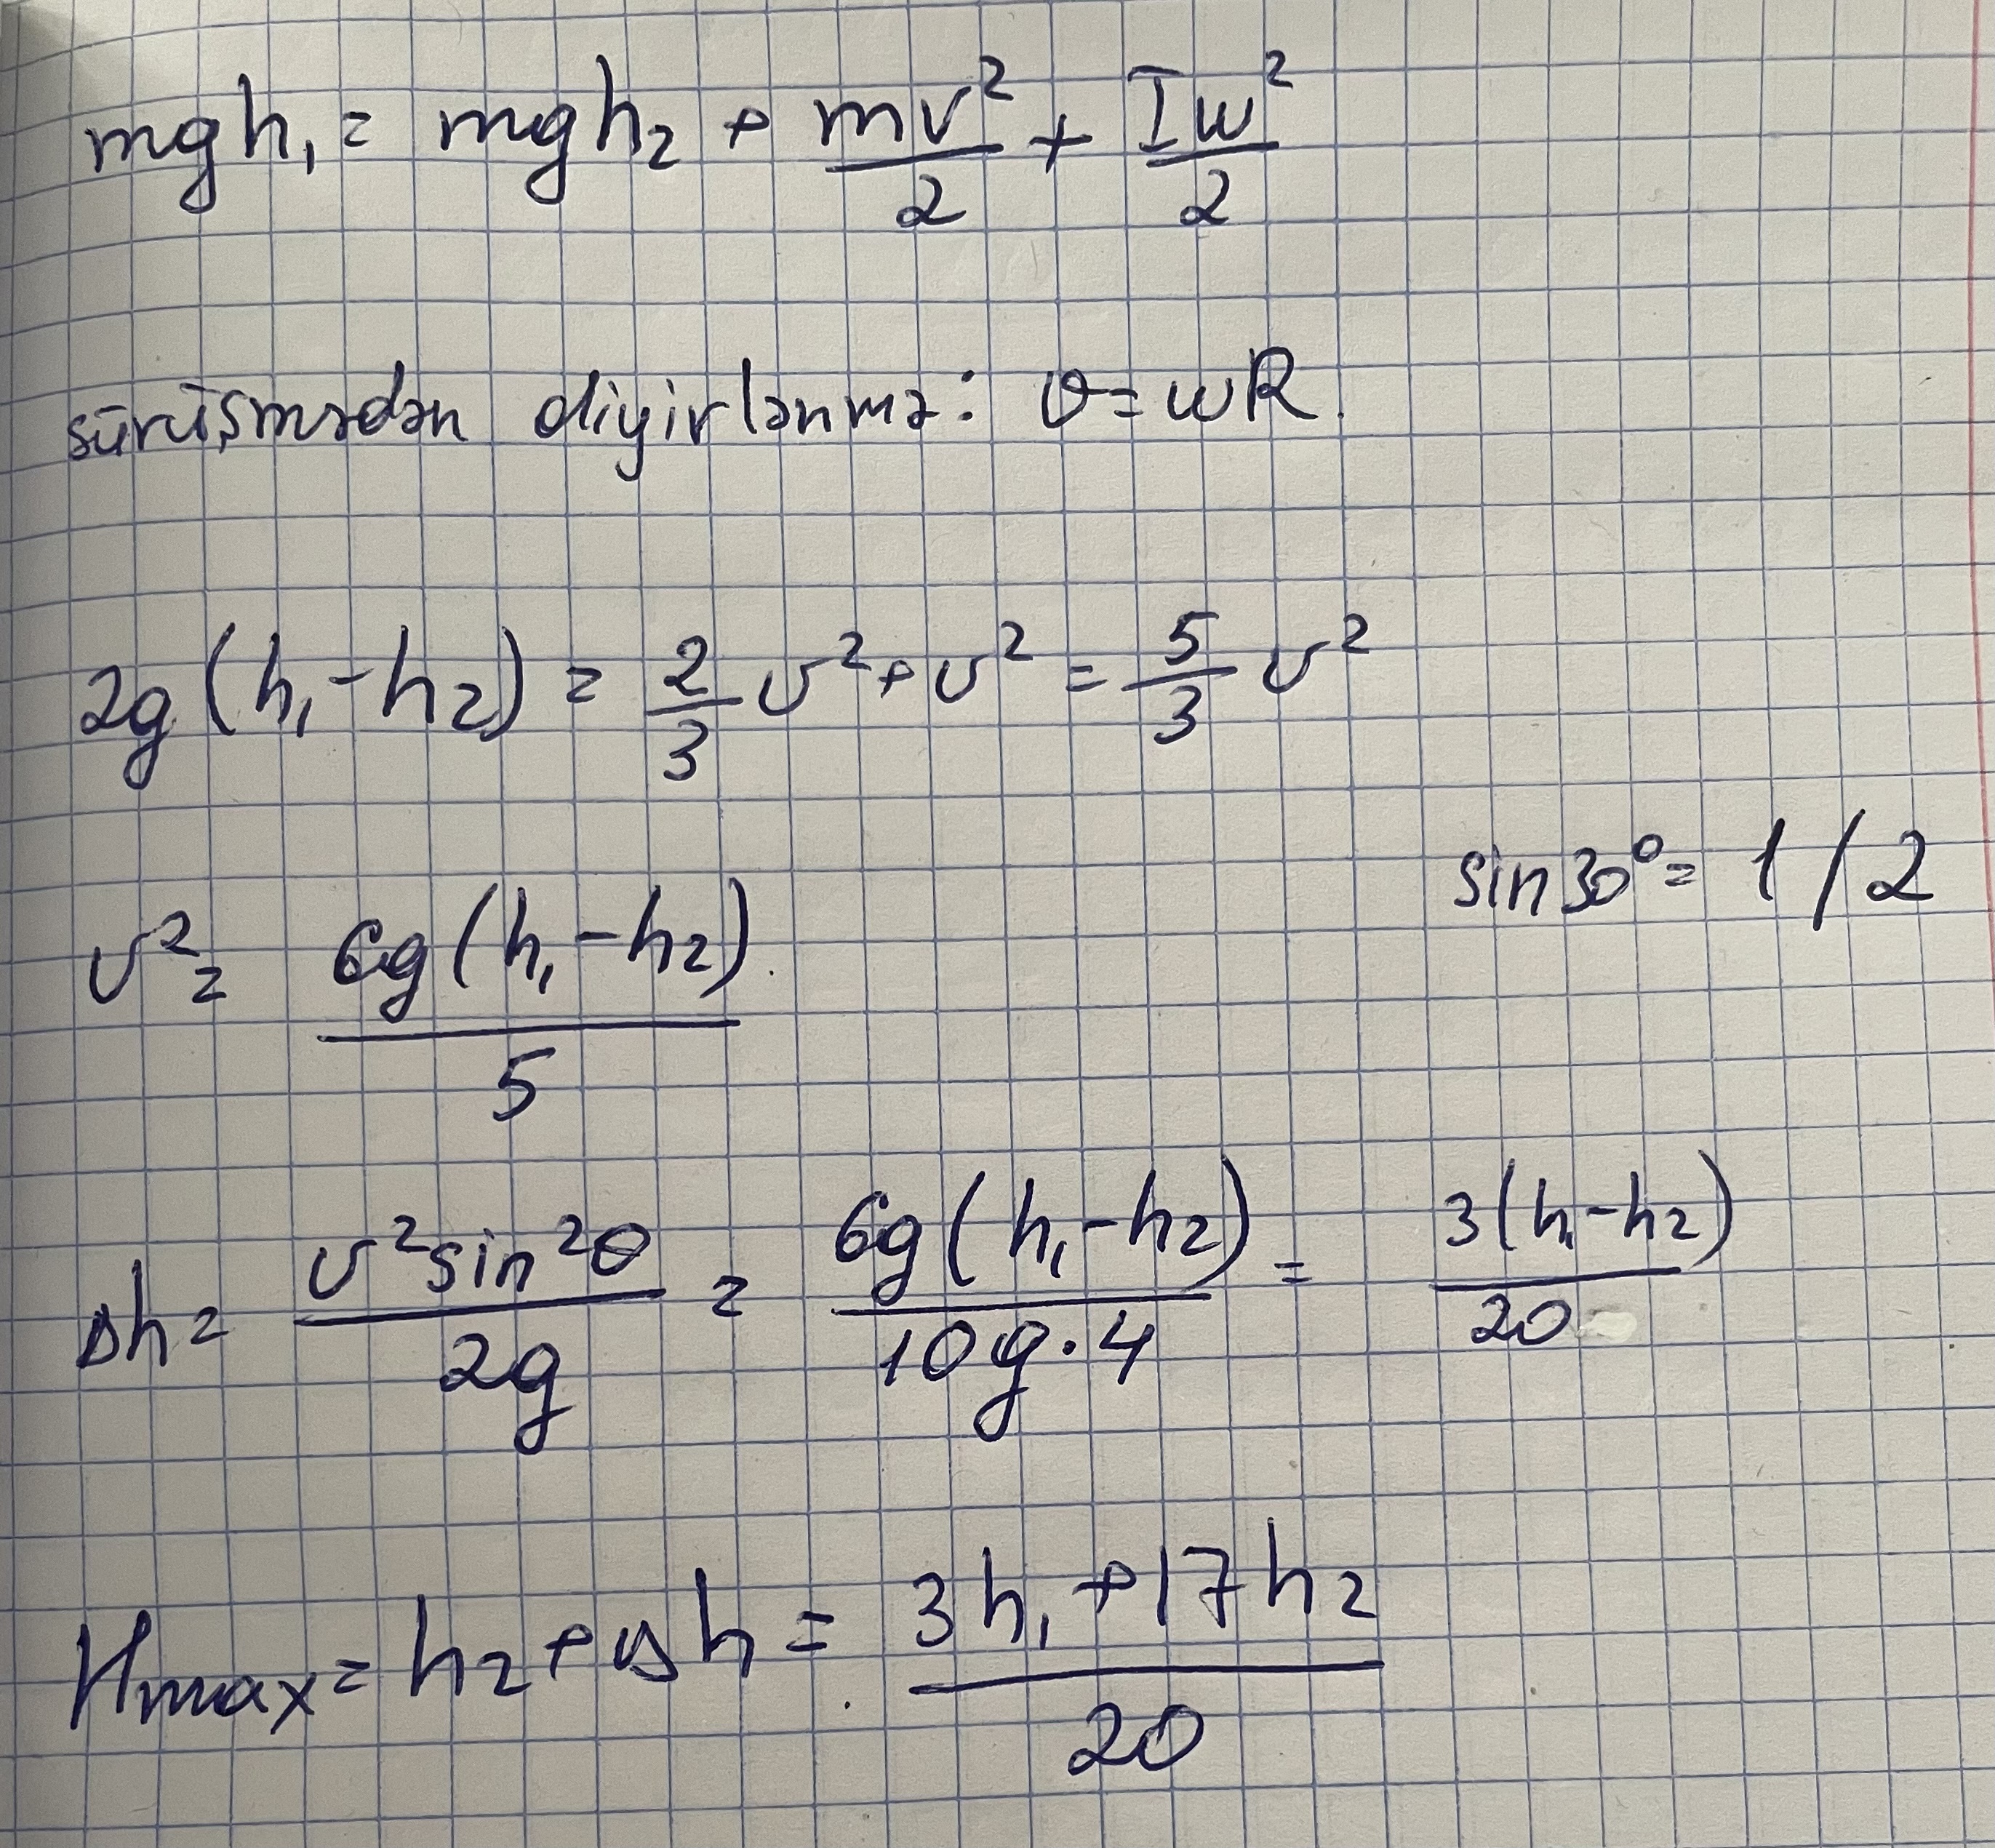 mgh₁ = mgh₂ + mv²/2 + Iw²/2
sürüşmədən diyirlənmə: v = wR.
2g(h₁-h₂) = 2/3 v² + v² = 5/3 v²
sin30° = 1/2
v² = 6g(h₁-h₂)/5
Δh = v²sin²θ/2g = 6g(h₁-h₂)/10g·4 = 3(h₁-h₂)/20
Hmax = h₂+Δh = 3h₁+17h₂/20